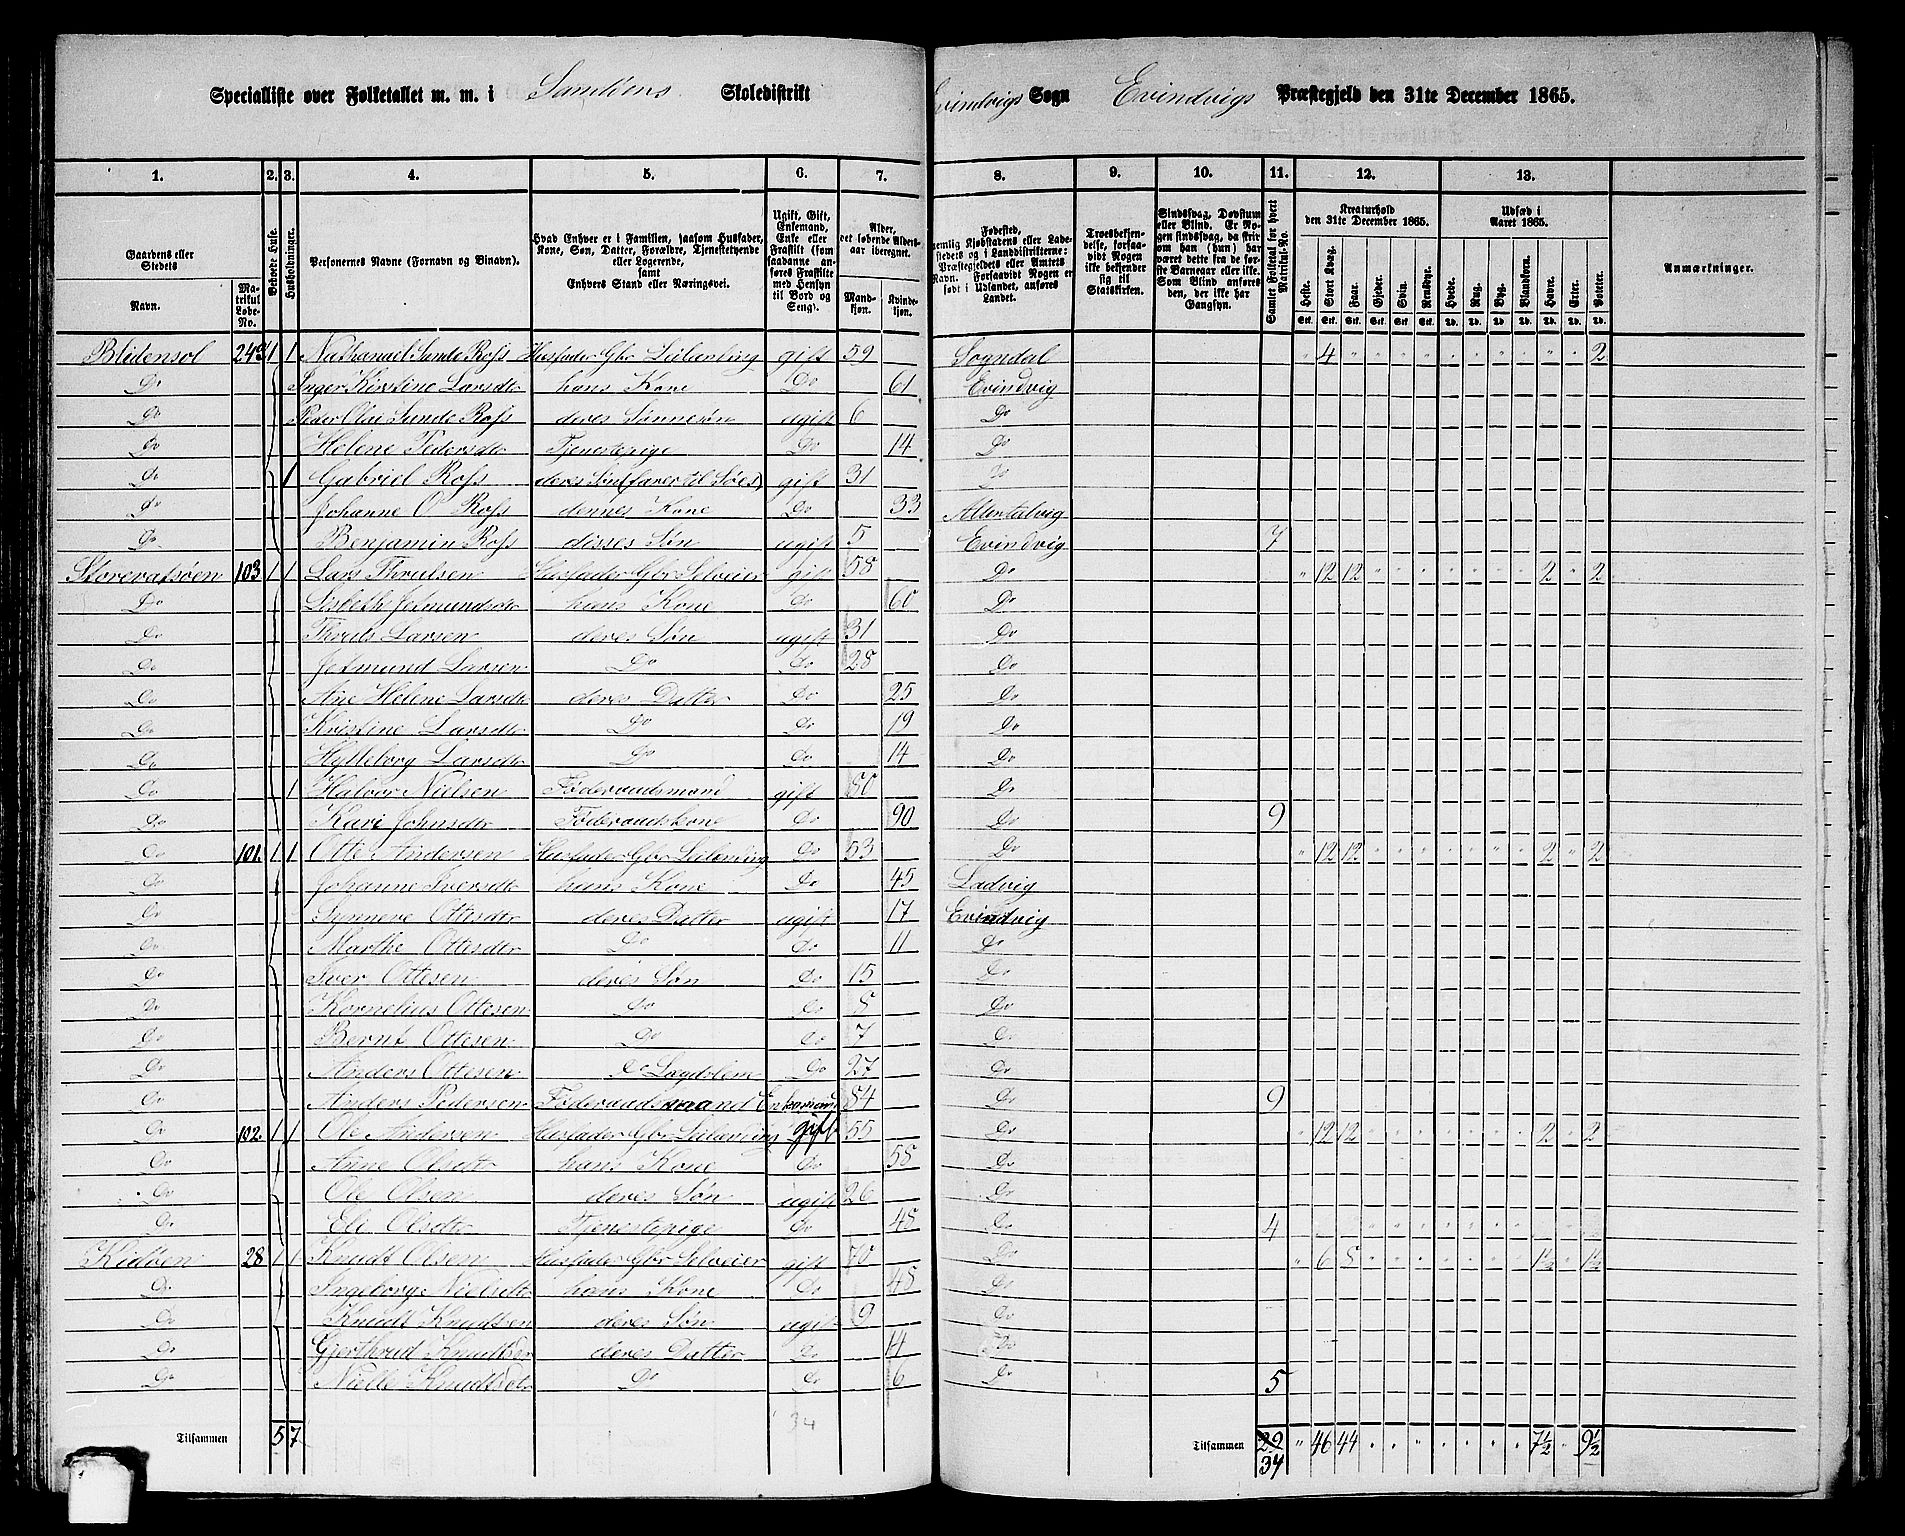 Specialliste over Folketallet m. m. i Sandøens Skoledistrikt Evindvigs Sogn Evindvigs Præstegjeld den 31te December 1865.
1. 2. 3. 4. 5. 6. 7. 8. 9. 10. 11. 12. 13.
Gaardens eller Stedets
Navn.
Matrikul Løbe-No.
Beboede Huse.
Husholdninger.
Personernes Navne (Fornavn og Binavn).
Hvad Enhver er i Familien, saasom Husfader, Kone, Søn, Datter, Forældre, Tjenestetyende eller Logerende, samt Enhvers Stand eller Næringsvei.
Ugift, Gift, Enkemand, Enke eller Fraskilt (som saadanne anføres Fraskilte med Hensyn til Bord og Seng).
Alder, det løbende Aldersaar iberegnet.
Mandkjøn. Kvindekjøn.
Anmærkninger.
Kreaturhold den 31te December 1865.
Udsæd i Aaret 1865.
Heste. Stort Kvæg. Faar. Gjeder. Svin. Rensdyr. Hvede. Rug. Byg. Blandkorn. Havre. Erter. Poteter.
Blidensol 243 1 1 Nathanael Sunde Ross Husfader Gbr Leilænding gift 59 Sogndal " 4 2
Do Inger Kirstine Larsdtr hans Kone Do 61 Evindvig
Do Peder Olai Sunde Ross deres Sønnesøn ugift 6 Do
Do Helene Pedersdtr Tjenestepige Do 14 Do
Do 1 Gabriel Ross deres Søn (farer til Søes) gift 31 Do
Do Johanne O Ross dennes Kone Do 33
Do Benjamin Ross disses Søn ugift 5 Evindvig 7
Storevatsøen 103 1 1 Lars Thrulsen Husfader Gbr Selveier gift 58 Do " 12 12 2 2
Do Lisbethe Jetmundsdtr hans Kone Do 60 Do
Do Thruls Larsen deres Søn ugift 31 Do
Do Jetmund Larsen Do Do 28 Do
Do Ane Helene Larsdtr deres Datter Do 25 Do
Do Kristine Larsdtr Do Do 19 Do
Do Hylleborg Larsdtr Do Do 14 Do
Do 1 Halvor Nielsen Føderaadsmand gift 80 Do
Do Kari Johnsdtr Føderaadskone Do 90 Do 9
Do 101. 1 1 Otte Andersen Husfader Gbr Leilænding Do 53 Do " 12 12 2 2
Do Johanne Iversdtr hans Kone Do 45 Ladvig
Do Synneve Ottesdtr deres Datter ugift 17 Evindvig
Do Marthe Ottesdtr Do Do 11 Do
Do Iver Ottesen deres Søn Do 15 Do
Do Kornelius Ottesen Do Do 8 Do
Do Bernt Ottesen Do Do 7 Do
Do Anders Ottesen Do Lægdslem Do 27 Do
Do Anders Pedersen Føderaadsmand Enkemand 84 Do 9
Do 102. 1 1 Ole Andersen Husfader Gbr Leilænding gift 55 Do " 12 12 2 2
Do Anne Olsdtr hans Kone Do 58 Do
Do Ole Olsen deres Søn ugift 26 Do
Do Eli Olsdtr Tjenestepige Do 48 Do 4
Kidøen 28 1 1 Knudt Olsen Husfader Gbr Selveier gift 70 Do " 6 8 1½ 1½
Do Ingeborg Nielsdtr hans Kone Do 48 Do
Do Knudt Knudtsen deres Søn ugift 9 Do
Do Gjerthrud Knudtsdtr deres Datter Do 14 Do
Do Nielle Knudtsdtr Do Do 6 Do 5
34
Tilsammen 5 7 Tilsammen 29 " 46 44 7½ 9½
34